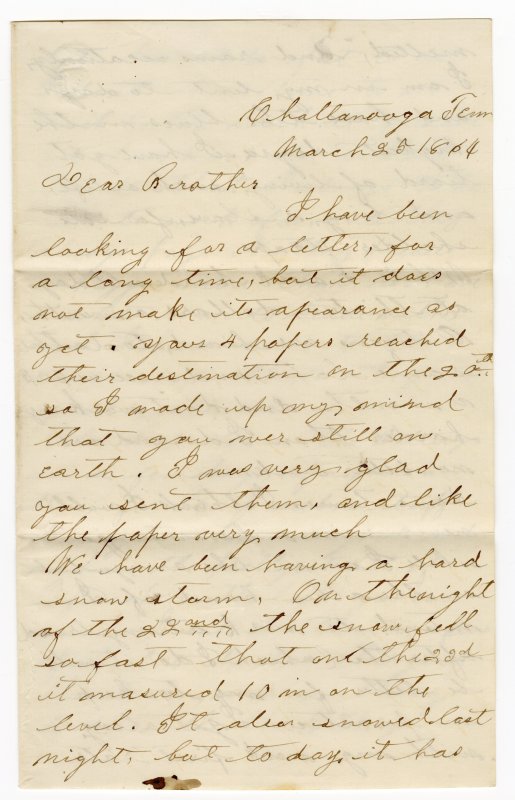 Chattanooga Tenn
March 25 1864
Dear Brother
I have been
looking for a letter, for
a long time, but it does
not make its apearance as
yet. Your 4 papers reached
their destination on the
so I made up my mind
that you wer still on
earth. I was very glad
you sent them, and like
the paper very much
We have been having a hard
snow storm. On the night
of the 22nd the snow fell
so fast that on the 23d
it masured 10 in on the
level. It also snowed last
night, but to day it has